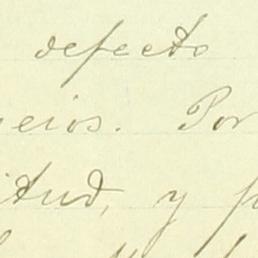 defecto
neios. Por
itud, y p